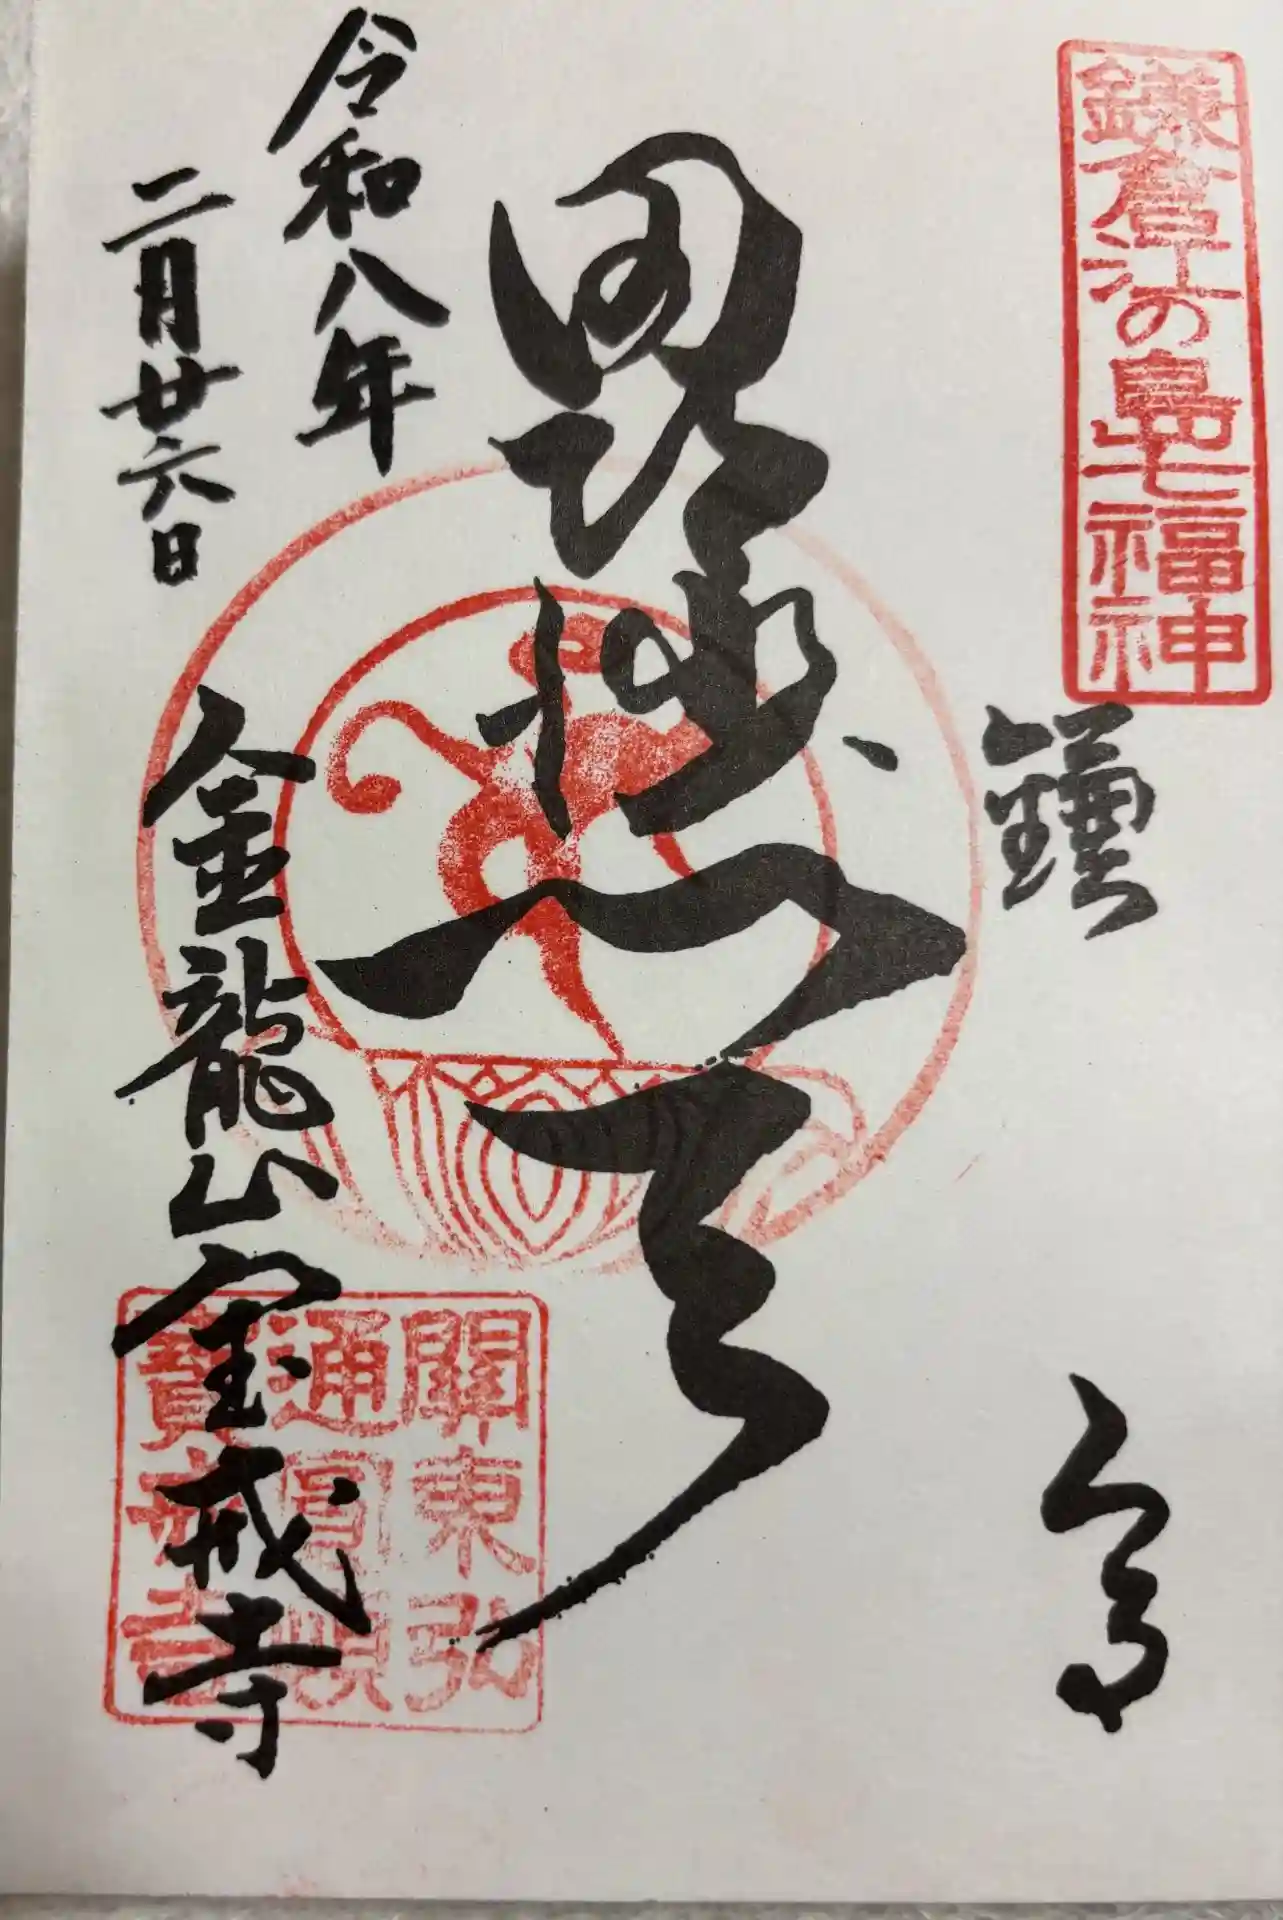 鎌倉江の島七福神
鎌
倉
毘沙門天
令和八年
二月廿六日
金龍山宝戒寺
關東弘
通圓頓
寶戒寺